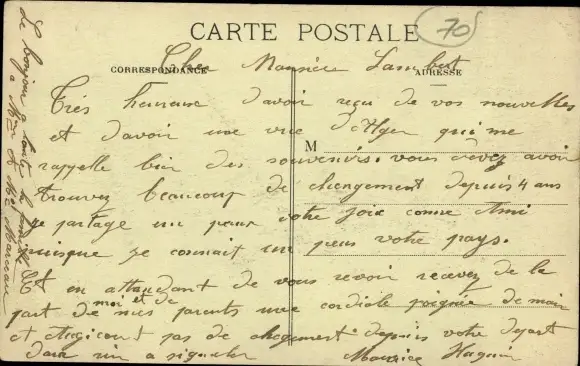 CARTE POSTALE
70
CORRESPONDANCE
ADRESSE
M
Cher Monsieur Lambert
Très heureuse d'avoir reçu de vos nouvelles
et d'avoir une vue d'Alger qui me
rappelle bien des souvenirs. vous devez avoir
trouvez beaucoup de changement depuis 4 ans
je partage un peux votre joie comme Ami
puisque je connait un peux votre pays.
Et en attendant de vous revoir recevez de la
part de moi et de mes parents une cordiale poignée de main
et ici pas de changement depuis votre depart
rien a signaler
Maurice
Le bonjour a toute la famille
a Mr et Mme Marceau